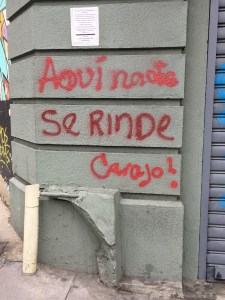 Aquí nadie
Se RINDE
Carajo!